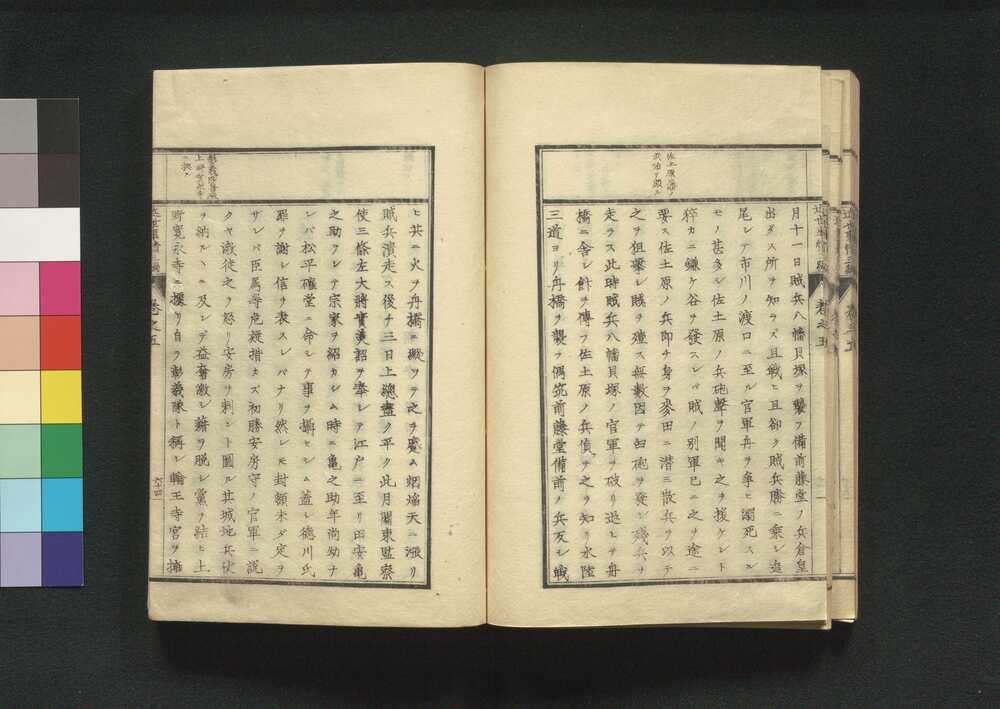 佐土原藩ノ
月十一日賊兵八幡貝塚ヲ襲ヲ備前藤堂ノ兵倉皇
出ダス所ヲ知ラズ且戰ヒ且卻ク賊兵勝ニ乘シ追
尾シテ市川ノ渡口ニ至ル官軍舟ヲ爭ヒ溺死スル
モノ甚多シ佐土原ノ兵砲聲ヲ聞キ之ヲ援ケント
猝カニ鎌ケ谷ヲ發スレバ賊ノ別軍已ニ之ヲ途ニ
要ス佐土原ノ兵卽チ身ヲ麥田ニ潜ニ散兵ヲ以テ
之ヲ狙擊シ賊ヲ殪ス無數因テ臼砲ヲ發シ殘兵ヲ
走ラス此時賊兵八幡貝塚ノ官軍ヲ破リ退ヒテ舟
橋ニ舍シ針ヲ傳フ佐土原ノ兵偵ヲ之ヲ知リ水陸
三道ヨリ舟橋ヲ襲ヲ偶筑前藤堂備前ノ兵反シ戰
近世
卷之五
ヒ共ニ火ヲ舟橋ニ縱ツテ之ヲ蹙ム烟焔天ニ漲リ
賊兵潰走ス後チ三日上總盡ク平ク此月關東監察
使三條左大將實美詔ヲ奉シテ江戸ニ至リ田安亀
之助ヲシテ宗家ヲ紹カシム時ニ亀之助年尚幼ナ
レバ松平確堂ニ命シテ事ヲ攝セシム蓋シ德川氏
罪ヲ謝シ信ヲ表スレバナリ然レモ封額未ダ定ヲ
サレバ臣属等危疑措カズ初勝安房守ノ官軍ニ説
クヤ激徒之ヲ怒リ安房ヲ刺ント圖ル其城地兵仗
ヲ納ルヽニ及レデ益奮激シ藉ヲ脱シ黨ヲ結ヒ上
野寛永寺ニ據リ自ラ彰義隊ト稱シ輪王寺宮ヲ擁
卷之五
六十四